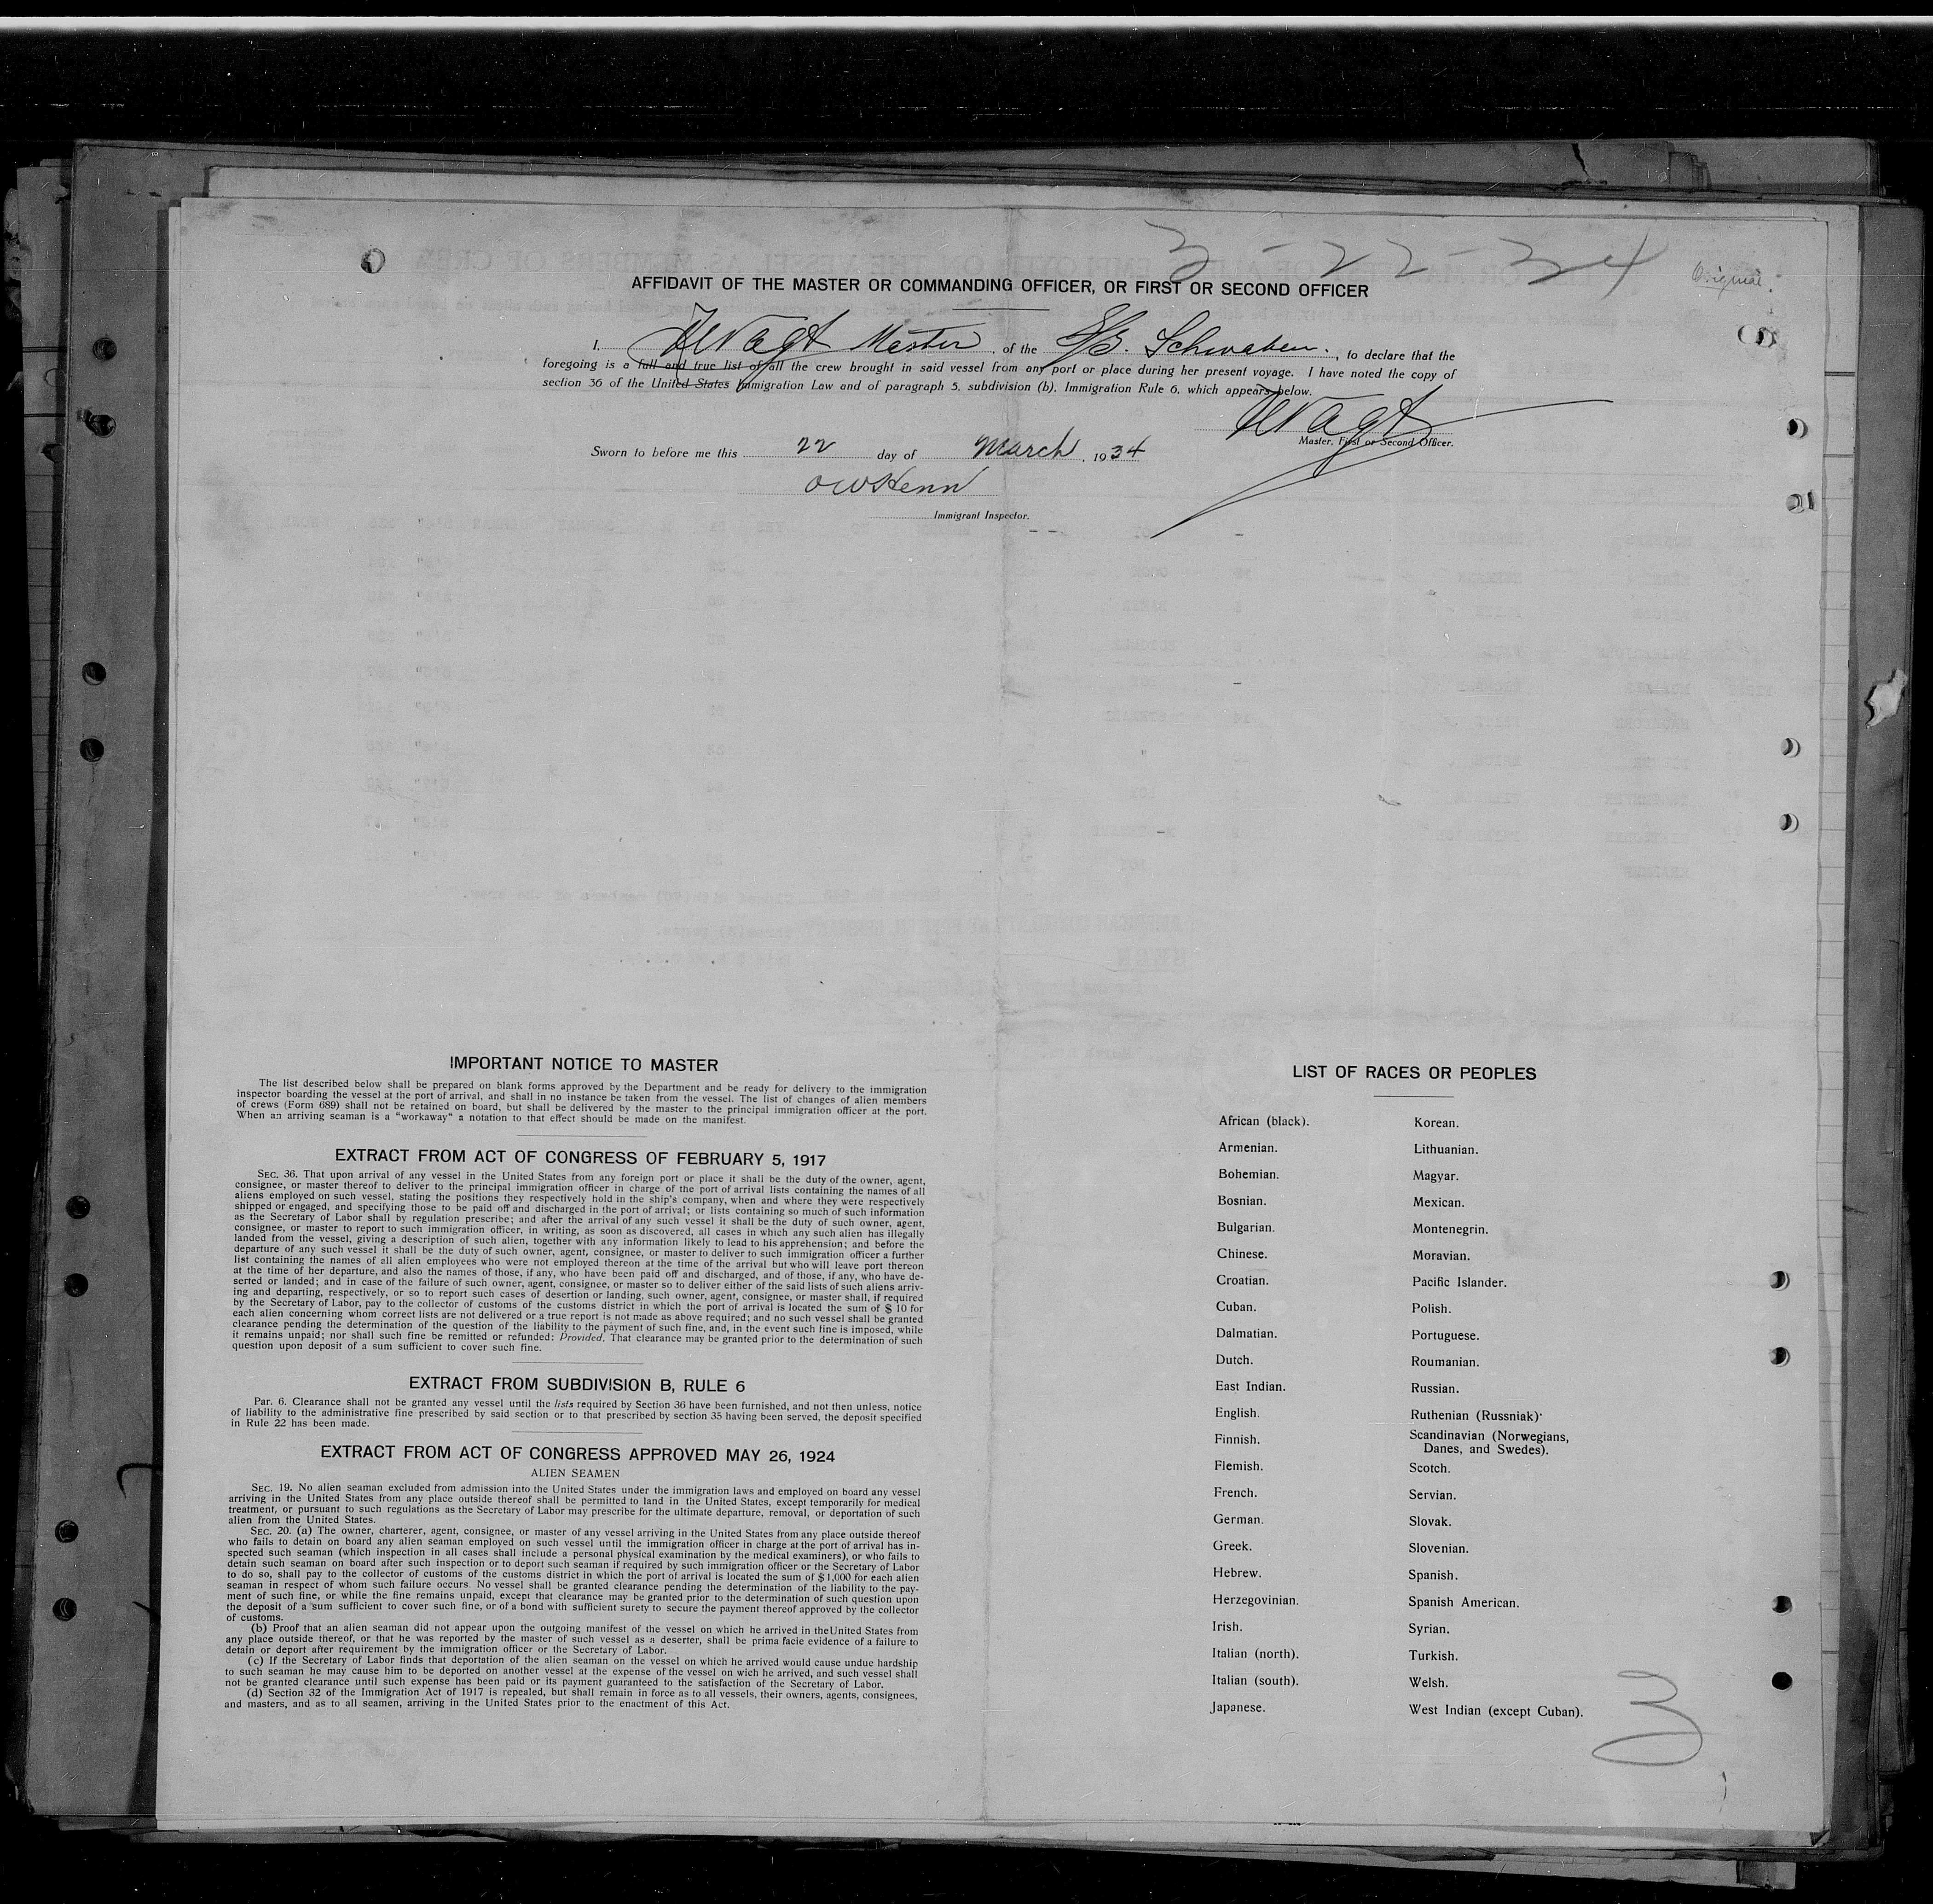 3-22-34
Original.
AFFIDAVIT OF THE MASTER OR COMMANDING OFFICER, OR FIRST OR SECOND OFFICER
I, Master, of the S/S. Schwaben., to declare that the
foregoing is a full and true list of all the crew brought in said vessel from any port or place during her present voyage. I have noted the copy of
section 36 of the United States Immigration Law and of paragraph 5, subdivision (b), Immigration Rule 6, which appears below.
Master, First or Second Officer.
Sworn to before me this 22 day of March, 1934
Immigrant Inspector.
IMPORTANT NOTICE TO MASTER
The list described below shall be prepared on blank forms approved by the Department and be ready for delivery to the immigration
inspector boarding the vessel at the port of arrival, and shall in no instance be taken from the vessel. The list of changes of alien members
of crews (Form 689) shall not be retained on board, but shall be delivered by the master to the principal immigration officer at the port.
When an arriving seaman is a "workaway" a notation to that effect should be made on the manifest.
EXTRACT FROM ACT OF CONGRESS OF FEBRUARY 5, 1917
SEC. 36. That upon arrival of any vessel in the United States from any foreign port or place it shall be the duty of the owner, agent,
consignee, or master thereof to deliver to the principal immigration officer in charge of the port of arrival lists containing the names of all
aliens employed on such vessel, stating the positions they respectively hold in the ship's company, when and where they were respectively
shipped or engaged, and specifying those to be paid off and discharged in the port of arrival; or lists containing so much of such information
as the Secretary of Labor shall by regulation prescribe; and after the arrival of any such vessel it shall be the duty of such owner, agent,
consignee, or master to report to such immigration officer, in writing, as soon as discovered, all cases in which any such alien has illegally
landed from the vessel, giving a description of such alien, together with any information likely to lead to his apprehension; and before the
departure of any such vessel it shall be the duty of such owner, agent, consignee, or master to deliver to such immigration officer a further
list containing the names of all alien employees who were not employed thereon at the time of the arrival but who will leave port thereon
at the time of her departure, and also the names of those, if any, who have been paid off and discharged, and of those, if any, who have de-
serted or landed; and in case of the failure of such owner, agent, consignee, or master so to deliver either of the said lists of such aliens arriv-
ing and departing, respectively, or so to report such cases of desertion or landing, such owner, agent, consignee, or master shall, if required
by the Secretary of Labor, pay to the collector of customs of the customs district in which the port of arrival is located the sum of $ 10 for
each alien concerning whom correct lists are not delivered or a true report is not made as above required; and no such vessel shall be granted
clearance pending the determination of the question of the liability to the payment of such fine, and, in the event such fine is imposed, while
it remains unpaid; nor shall such fine be remitted or refunded: Provided, That clearance may be granted prior to the determination of such
question upon deposit of a sum sufficient to cover such fine.
EXTRACT FROM SUBDIVISION B, RULE 6
Par. 6. Clearance shall not be granted any vessel until the lists required by Section 36 have been furnished, and not then unless, notice
of liability to the administrative fine prescribed by said section or to that prescribed by section 35 having been served, the deposit specified
in Rule 22 has been made.
EXTRACT FROM ACT OF CONGRESS APPROVED MAY 26, 1924
ALIEN SEAMEN
SEC. 19. No alien seaman excluded from admission into the United States under the immigration laws and employed on board any vessel
arriving in the United States from any place outside thereof shall be permitted to land in the United States, except temporarily for medical
treatment, or pursuant to such regulations as the Secretary of Labor may prescribe for the ultimate departure, removal, or deportation of such
alien from the United States.
SEC. 20. (a) The owner, charterer, agent, consignee, or master of any vessel arriving in the United States from any place outside thereof
who fails to detain on board any alien seaman employed on such vessel until the immigration officer in charge at the port of arrival has in-
spected such seaman (which inspection in all cases shall include a personal physical examination by the medical examiners), or who fails to
detain such seaman on board after such inspection or to deport such seaman if required by such immigration officer or the Secretary of Labor
to do so, shall pay to the collector of customs of the customs district in which the port of arrival is located the sum of $ 1,000 for each alien
seaman in respect of whom such failure occurs. No vessel shall be granted clearance pending the determination of the liability to the pay-
ment of such fine, or while the fine remains unpaid, except that clearance may be granted prior to the determination of such question upon
the deposit of a sum sufficient to cover such fine, or of a bond with sufficient surety to secure the payment thereof approved by the collector
of customs.
(b) Proof that an alien seaman did not appear upon the outgoing manifest of the vessel on which he arrived in theUnited States from
any place outside thereof, or that he was reported by the master of such vessel as a deserter, shall be prima facie evidence of a failure to
detain or deport after requirement by the immigration officer or the Secretary of Labor.
(c) If the Secretary of Labor finds that deportation of the alien seaman on the vessel on which he arrived would cause undue hardship
to such seaman he may cause him to be deported on another vessel at the expense of the vessel on wich he arrived, and such vessel shall
not be granted clearance until such expense has been paid or its payment guaranteed to the satisfaction of the Secretary of Labor.
(d) Section 32 of the Immigration Act of 1917 is repealed, but shall remain in force as to all vessels, their owners, agents, consignees,
and masters, and as to all seamen, arriving in the United States prior to the enactment of this Act.
LIST OF RACES OR PEOPLES
African (black).
Armenian.
Bohemian.
Bosnian.
Bulgarian.
Chinese.
Croatian.
Cuban.
Dalmatian.
Dutch.
East Indian.
English.
Finnish.
Flemish.
French.
German.
Greek.
Hebrew.
Herzegovinian.
Irish.
Italian (north).
Italian (south).
Japanese.
Korean.
Lithuanian.
Magyar.
Mexican.
Montenegrin.
Moravian.
Pacific Islander.
Polish.
Portuguese.
Roumanian.
Russian.
Ruthenian (Russniak).
Scandinavian (Norwegians,
Danes, and Swedes).
Scotch.
Servian.
Slovak.
Slovenian.
Spanish.
Spanish American.
Syrian.
Turkish.
Welsh.
West Indian (except Cuban).
3